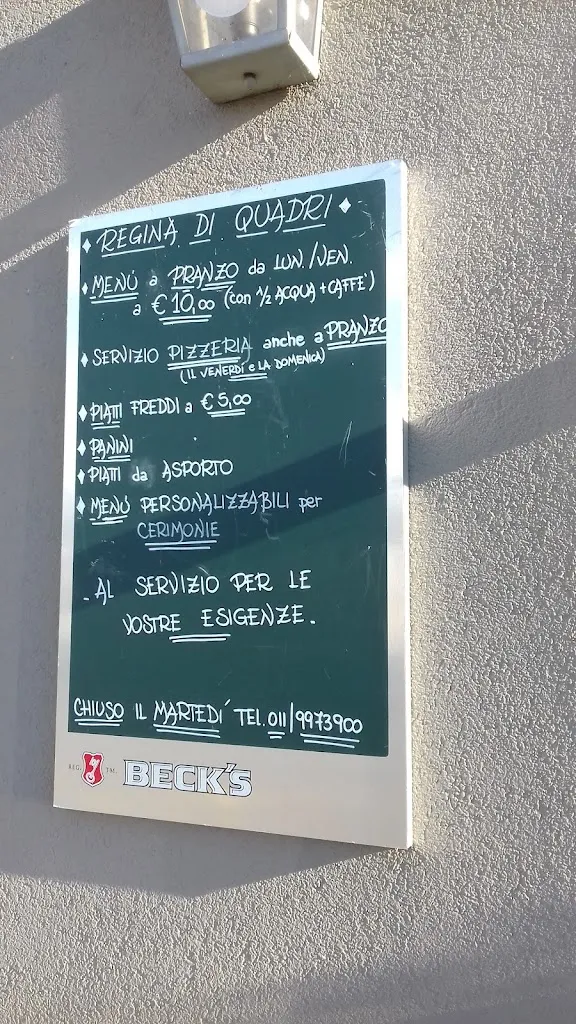 ♦ REGINA DI QUADRI ♦
♦ MENÚ a PRANZO da LUN./VEN.
a € 10,00 (con ½ ACQUA + CAFFE')
♦ SERVIZIO PIZZERIA anche a PRANZO
(IL VENERDÍ e LA DOMENICA)
♦ PIATTI FREDDI a € 5,00
♦ PANINI
♦ PIATTI da ASPORTO
♦ MENÚ PERSONALIZZABILI per
CERIMONIE
- AL SERVIZIO PER LE
VOSTRE ESIGENZE.
CHIUSO IL MARTEDI' TEL. 011/9973900
REG. TM. BECK'S